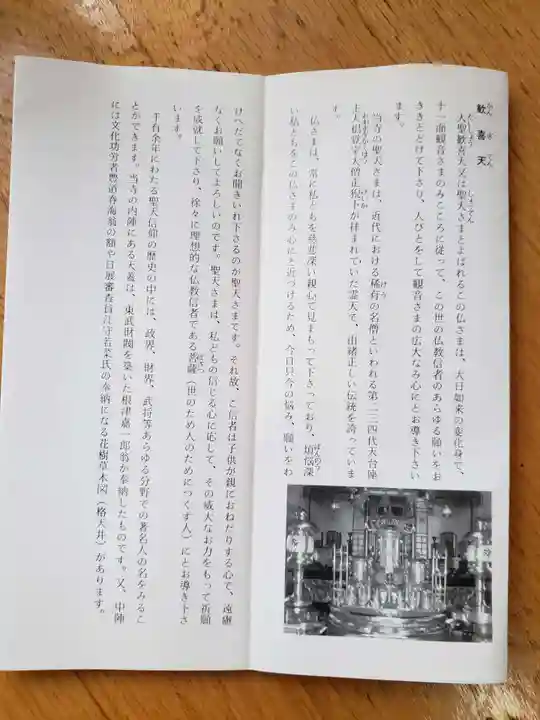 歓喜天
大聖歓喜天又は聖天さまとよばれるこの仏さまは、大日如来の変化身で、
十一面観音さまのみこころに従って、この世の仏教信者のあらゆる願いをお
ききとどけて下さり、人びとをして観音さまの広大なみ心にとお導き下さい
ます。
当寺の聖天さまは、近代における稀有の名僧といわれる第二三四代天台座
主大僧正猊下が拝まれていた霊天で、由緒正しい伝統を誇っていま
す。
仏さまは、常に私どもを慈悲深い親心で見まもって下さっており、煩悩深
い私どもをこの仏さまのみ心にと近づけるため、今日只今の悩み、願いをわ
けへだてなくお聞きいれ下さるのが聖天さまです。それ故、ご信者は子供が親におねだりする心で、遠慮
なくお願いしてよろしいのです。聖天さまは、私どもの信じる心に応じて、その威大なお力をもって祈願
を成就して下さり、徐々に理想的な仏教信者である菩薩(世のため人のためにつくす人)にとお導き下さ
います。
千有余年にわたる聖天信仰の歴史の中には、政界、財界、武将等あらゆる分野での著名人の名をみるこ
とができます。当寺の内陣にある天蓋は、東武財閥を築いた根津嘉一郎翁が奉納したものです。又、中陣
には文化功労者豊道春海翁の額や日展審査員江守若菜氏の奉納になる花樹草木図(格天井)があります。